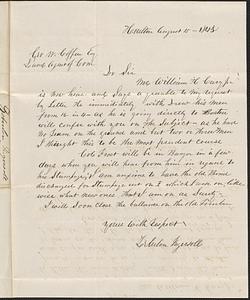 Houlton August 10 - 1848
Geo. W. Coffin Esq
Land Agent of Com
Dr Sir
Mr William H. Cary jr
is now home and says agreeable to my request
by Letter He immediately withdrew his men
from 12 in as he is going directly to Boston
will confer with you on the Subject - as he has
no team on the ground and but two or three men
I thought this to be the most prudent course
Cob Frost will be in Bangor in a few
days when you will hear from him in regard to
his Stumpage I am anxious to have the old Bond
discharged for Stumpage cut on 2 which I was on, like
wise what new ones that I am on as Surety -
I will soon close the ballance on the old Permit
Yours With Respect
Ingersoll